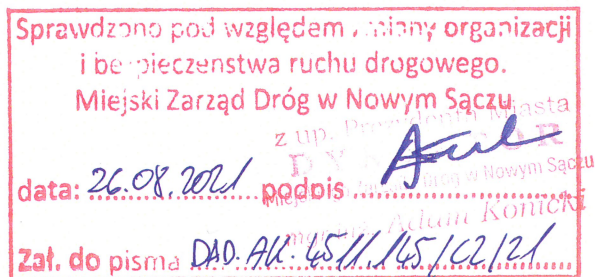 Sprawdzono pod względem zmiany organizacji
i bezpieczenstwa ruchu drogowego.
Miejski Zarząd Dróg w Nowym Sączu
z up. Prezydenta Miasta
DYREKTOR
Miejskiego Zarządu Dróg w Nowym Sączu
data: 26.08.2021 podpis
mgr Adam Konicki
Zał. do pisma DAD.AK.4511.145/C2/21